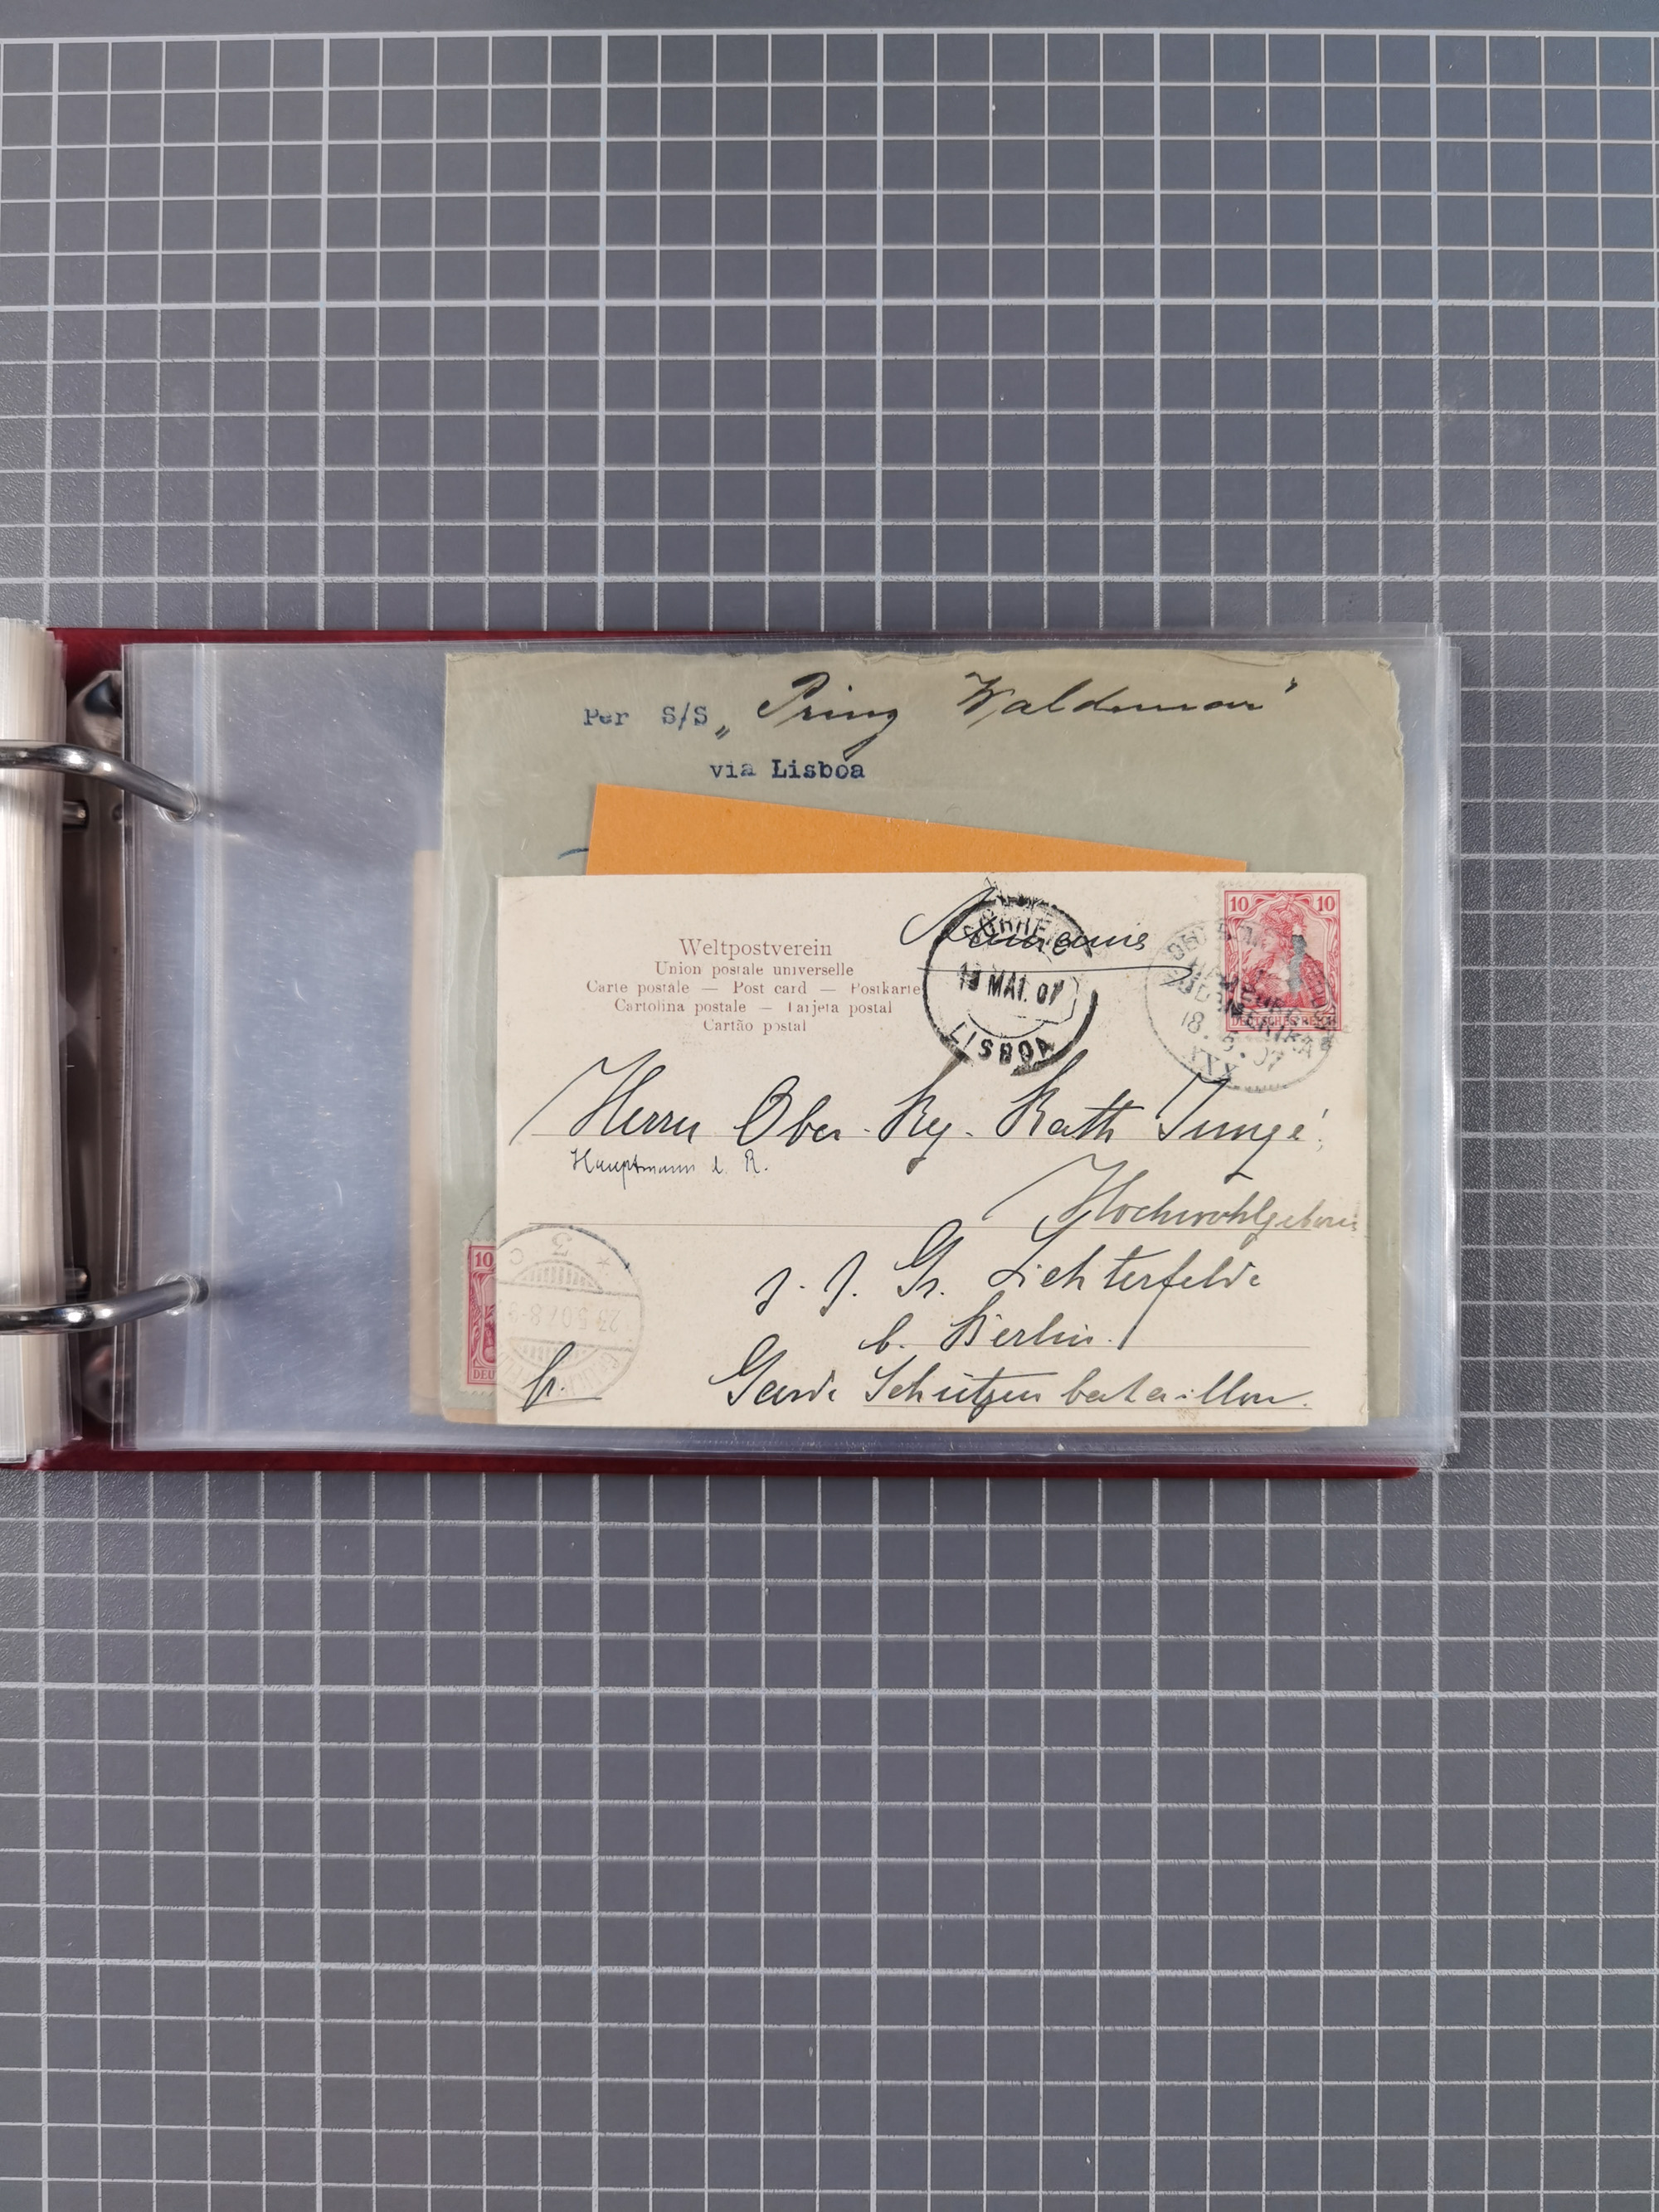 Per S/S „Prinz Waldemar"
via Lisboa
Weltpostverein
Union postale universelle
Carte postale — Post card — Postkarte
Cartolina postale — Tarjeta postal
Cartão postal
CORREIO
19 MAI. 07
LISBOA
10 10
DEUTSCHES REICH
18. 5. 07
XXX
Herrn Ober-Reg. Rath Junge
Hauptmann d. R.
Hochwohlgeboren
z. Z. Gr. Lichterfelde
b. Berlin.
Garde Schützen bataillon.
fr.
3
C
23.5.07.8-9
10
DEU